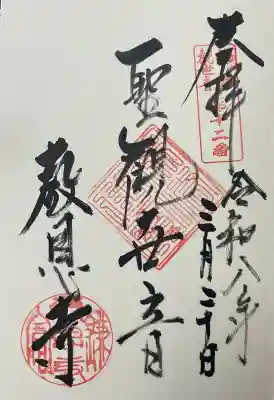 奉拝
令和八年
三月二十日
聖觀世音
教恩寺
十二番